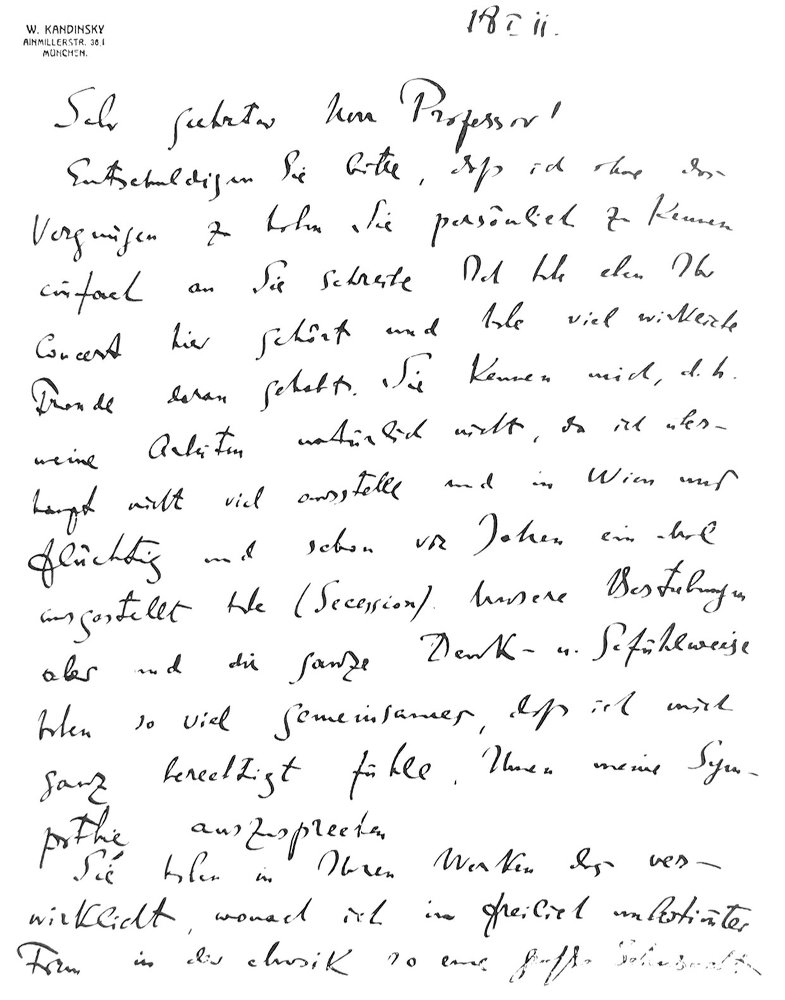 W. KANDINSKY
AINMILLERSTR. 36.I
MÜNCHEN.
18 I 11.
Sehr geehrter Herr Professor!
Entschuldigen Sie bitte, daß ich ohne das
Vergnügen zu haben Sie persönlich zu kennen
einfach an Sie schreibe Ich habe eben Ihr
Concert hier gehört und habe viel wirkliche
Freude daran gehabt. Sie kennen mich, d. h.
meine Arbeiten natürlich nicht, da ich über-
haupt nicht viel ausstelle und in Wien nur
flüchtig und schon vor Jahren ein Mal
ausgestellt habe (Secession). Unsere Bestrebungen
aber und die ganze Denk- u. Gefühlsweise
haben so viel gemeinsames, daß ich mich
ganz berechtigt fühle, Ihnen meine Sym-
pathie auszusprechen
Sie haben in Ihren Werken das ver-
wirklicht, wonach ich in freilich unbestimmter
Form in der Musik so eine große Sehnsucht